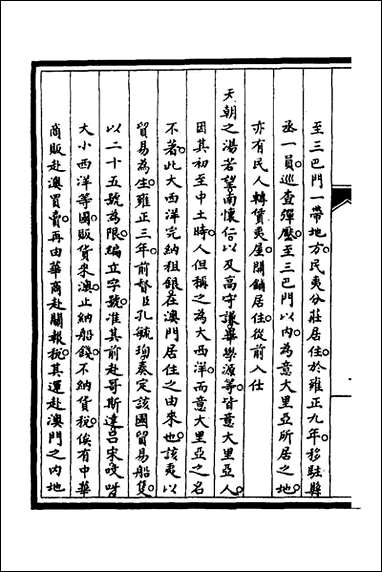 至三巴門一帶地方民夷分莊居住於雍正九年移駐縣
丞一員巡查彈壓至三巴門以內為意大里亞所居之地
亦有民人轉賃夷屋開鋪居住從前入仕
天朝之湯若望南懷仁以及高守謙畢學源等皆意大里亞人
因其初至中土時人但稱之為大西洋而意大里亞之名
不著此大西洋完納租銀在澳門居住之由來也該夷以
貿易為生雍正三年前督臣孔毓珣奏定該國貿易船隻
以二十五號為限編立字號准其前赴哥斯達呂宋咬𠺕
大小西洋等國販貨來澳止納船餞不納貨稅俟有中華
商販赴澳買賣再由華商赴關報稅其運赴澳門之內地